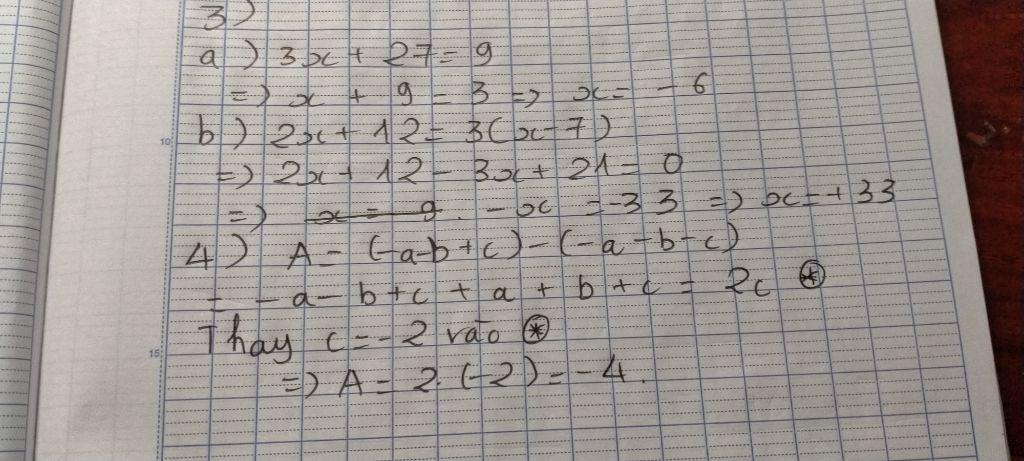 3)
a) 3x + 27 = 9
=) x + 9 = 3 => x = - 6
b) 2x + 12 = 3(x - 7)
=) 2x + 12 - 3x + 21 = 0
=) x = 9 - x = -33 => x = + 33
4) A = (-a-b+c) - (-a-b-c)
= -a-b+c + a + b + c = 2c (*)
Thay c = -2 vào (*)
=) A = 2.(-2) = -4.
10
15